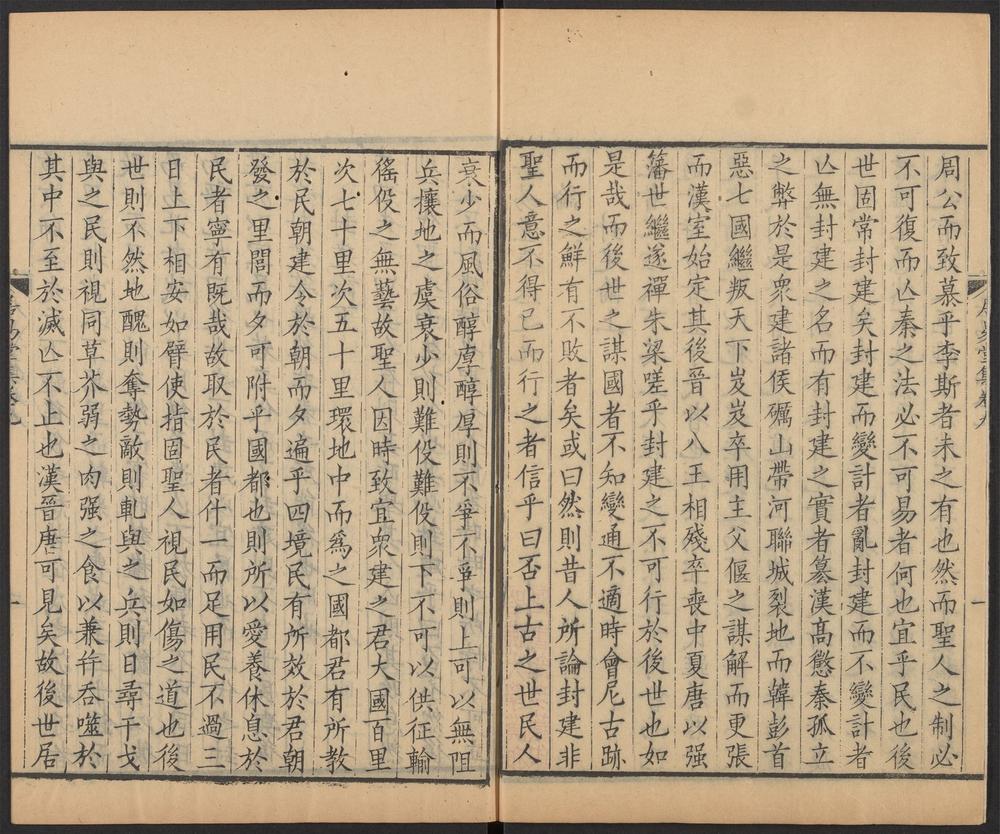 周公而致慕乎李斯者未之有也然而聖人之制必
不可復而亾秦之法必不可易者何也宜乎民也後
世固常封建矣封建而變計者亂封建而不變計者
亾無封建之名而有封建之實者篡漢高懲秦孤立
之弊於是衆建諸侯礪山帶河聯城裂地而韓彭首
惡七國繼叛天下岌岌卒用主父偃之謀解而更張
而漢室始定其後晉以八王相殘卒喪中夏唐以强
籓世繼遂禪朱梁嗟乎封建之不可行於後世也如
是哉而後世之謀國者不知變通不適時會尼古跡
而行之鮮有不敗者矣或曰然則昔人所論封建非
聖人意不得已而行之者信乎曰否上古之世民人
衰少而風俗醇厚醇厚則不爭不爭則上可以無阻
兵攘地之虞衰少則難役難役則下不可以供征輸
徭役之無藝故聖人因時致宜衆建之君大國百里
次七十里次五十里環地中而爲之國都君有所教
於民朝建令於朝而夕遍乎四境民有所效於君朝
發之里閭而夕可附乎國都也則所以愛養休息於
民者寧有既哉故取於民者什一而足用民不過三
日上下相安如臂使指固聖人視民如傷之道也後
世則不然地醜則奪勢敵則軋與之兵則日尋干戈
與之民則視同草芥弱之肉强之食以兼幷吞噬於
其中不至於滅亾不止也漢晉唐可見矣故後世居